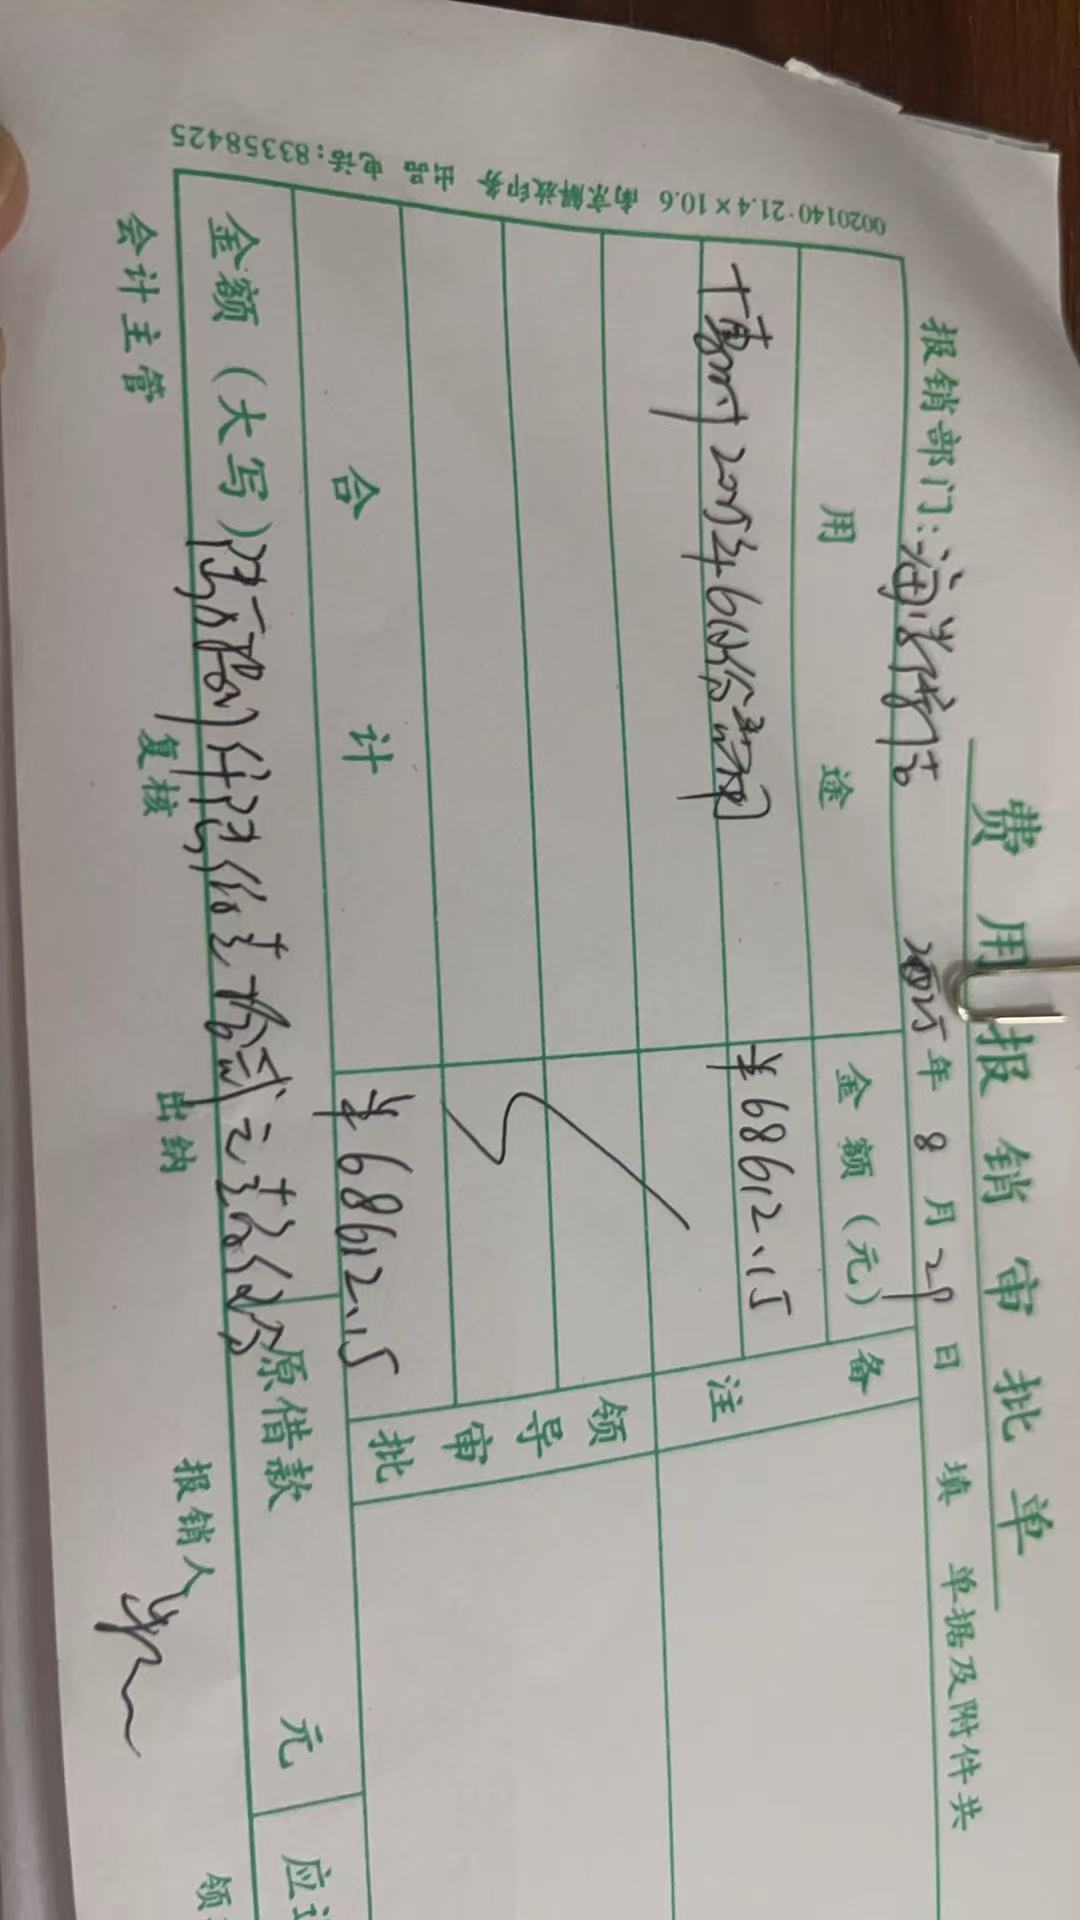 费用报销审批单
报销部门: 2025年8月29日 填 单据及附件共
用途 金额(元) 备注
2025年6月份 ¥68612.15
领导审批
合计 ¥68612.15
金额(大写) 陆万捌仟陆佰壹拾贰元壹角伍分 原借款 元
会计主管 复核 出纳 报销人
0020140·21.4×10.6 南京解放印务 出品 电话:83358425